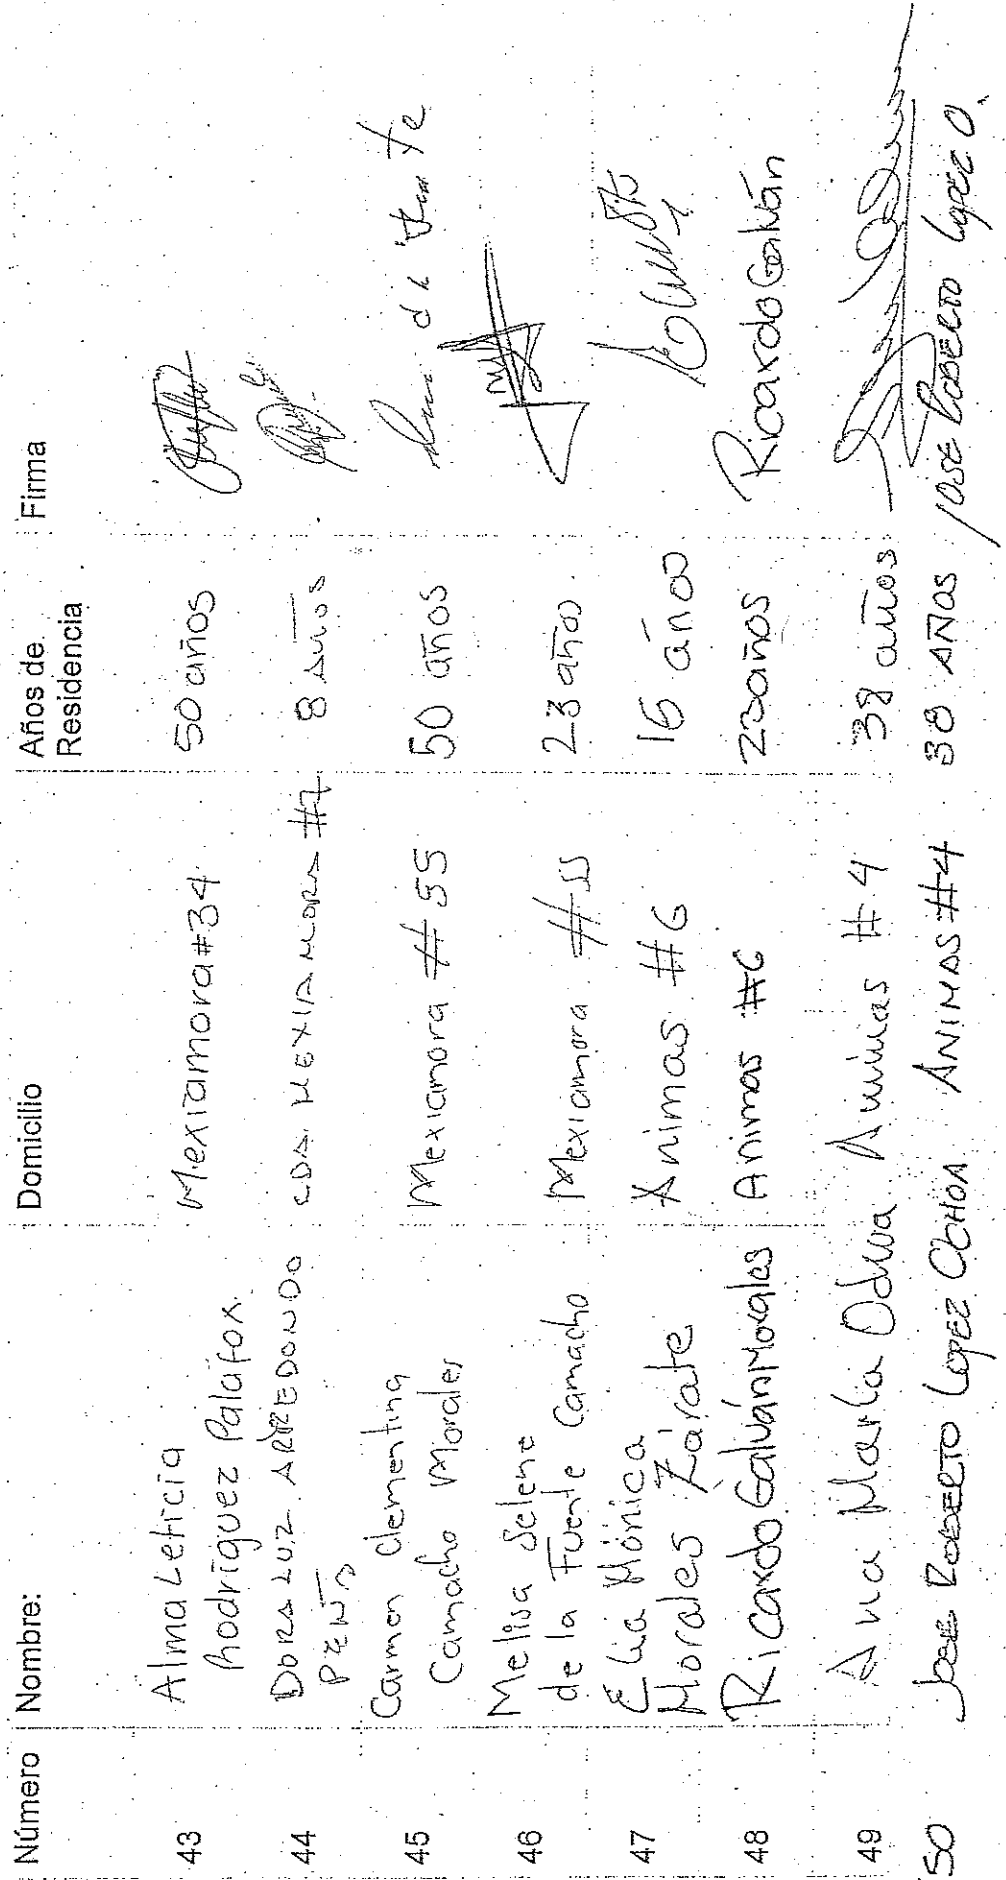 Número Nombre: Domicilio Años de Residencia Firma
43 Alma Leticia Rodríguez Palafox. Mexiamora #34 50 años
44 DORA LUZ ARREDONDO PEÑA CDA. MEXIAMORA #7 8 AÑOS
45 Carmen Clementina Camacho Morales Mexiamora #55 50 años
46 Melisa Selene de la Fuente Camacho Mexiamora #55 23 años
47 Elia Mónica Morales Zárate Animas #6 16 años
48 Ricardo Galván Morales Animas #6 23 años Ricardo Galván
49 Ana María Animas #4 38 años
50 JOSE ROBERTO LOPEZ OCHOA ANIMAS #4 38 AÑOS JOSE ROBERTO LOPEZ O.